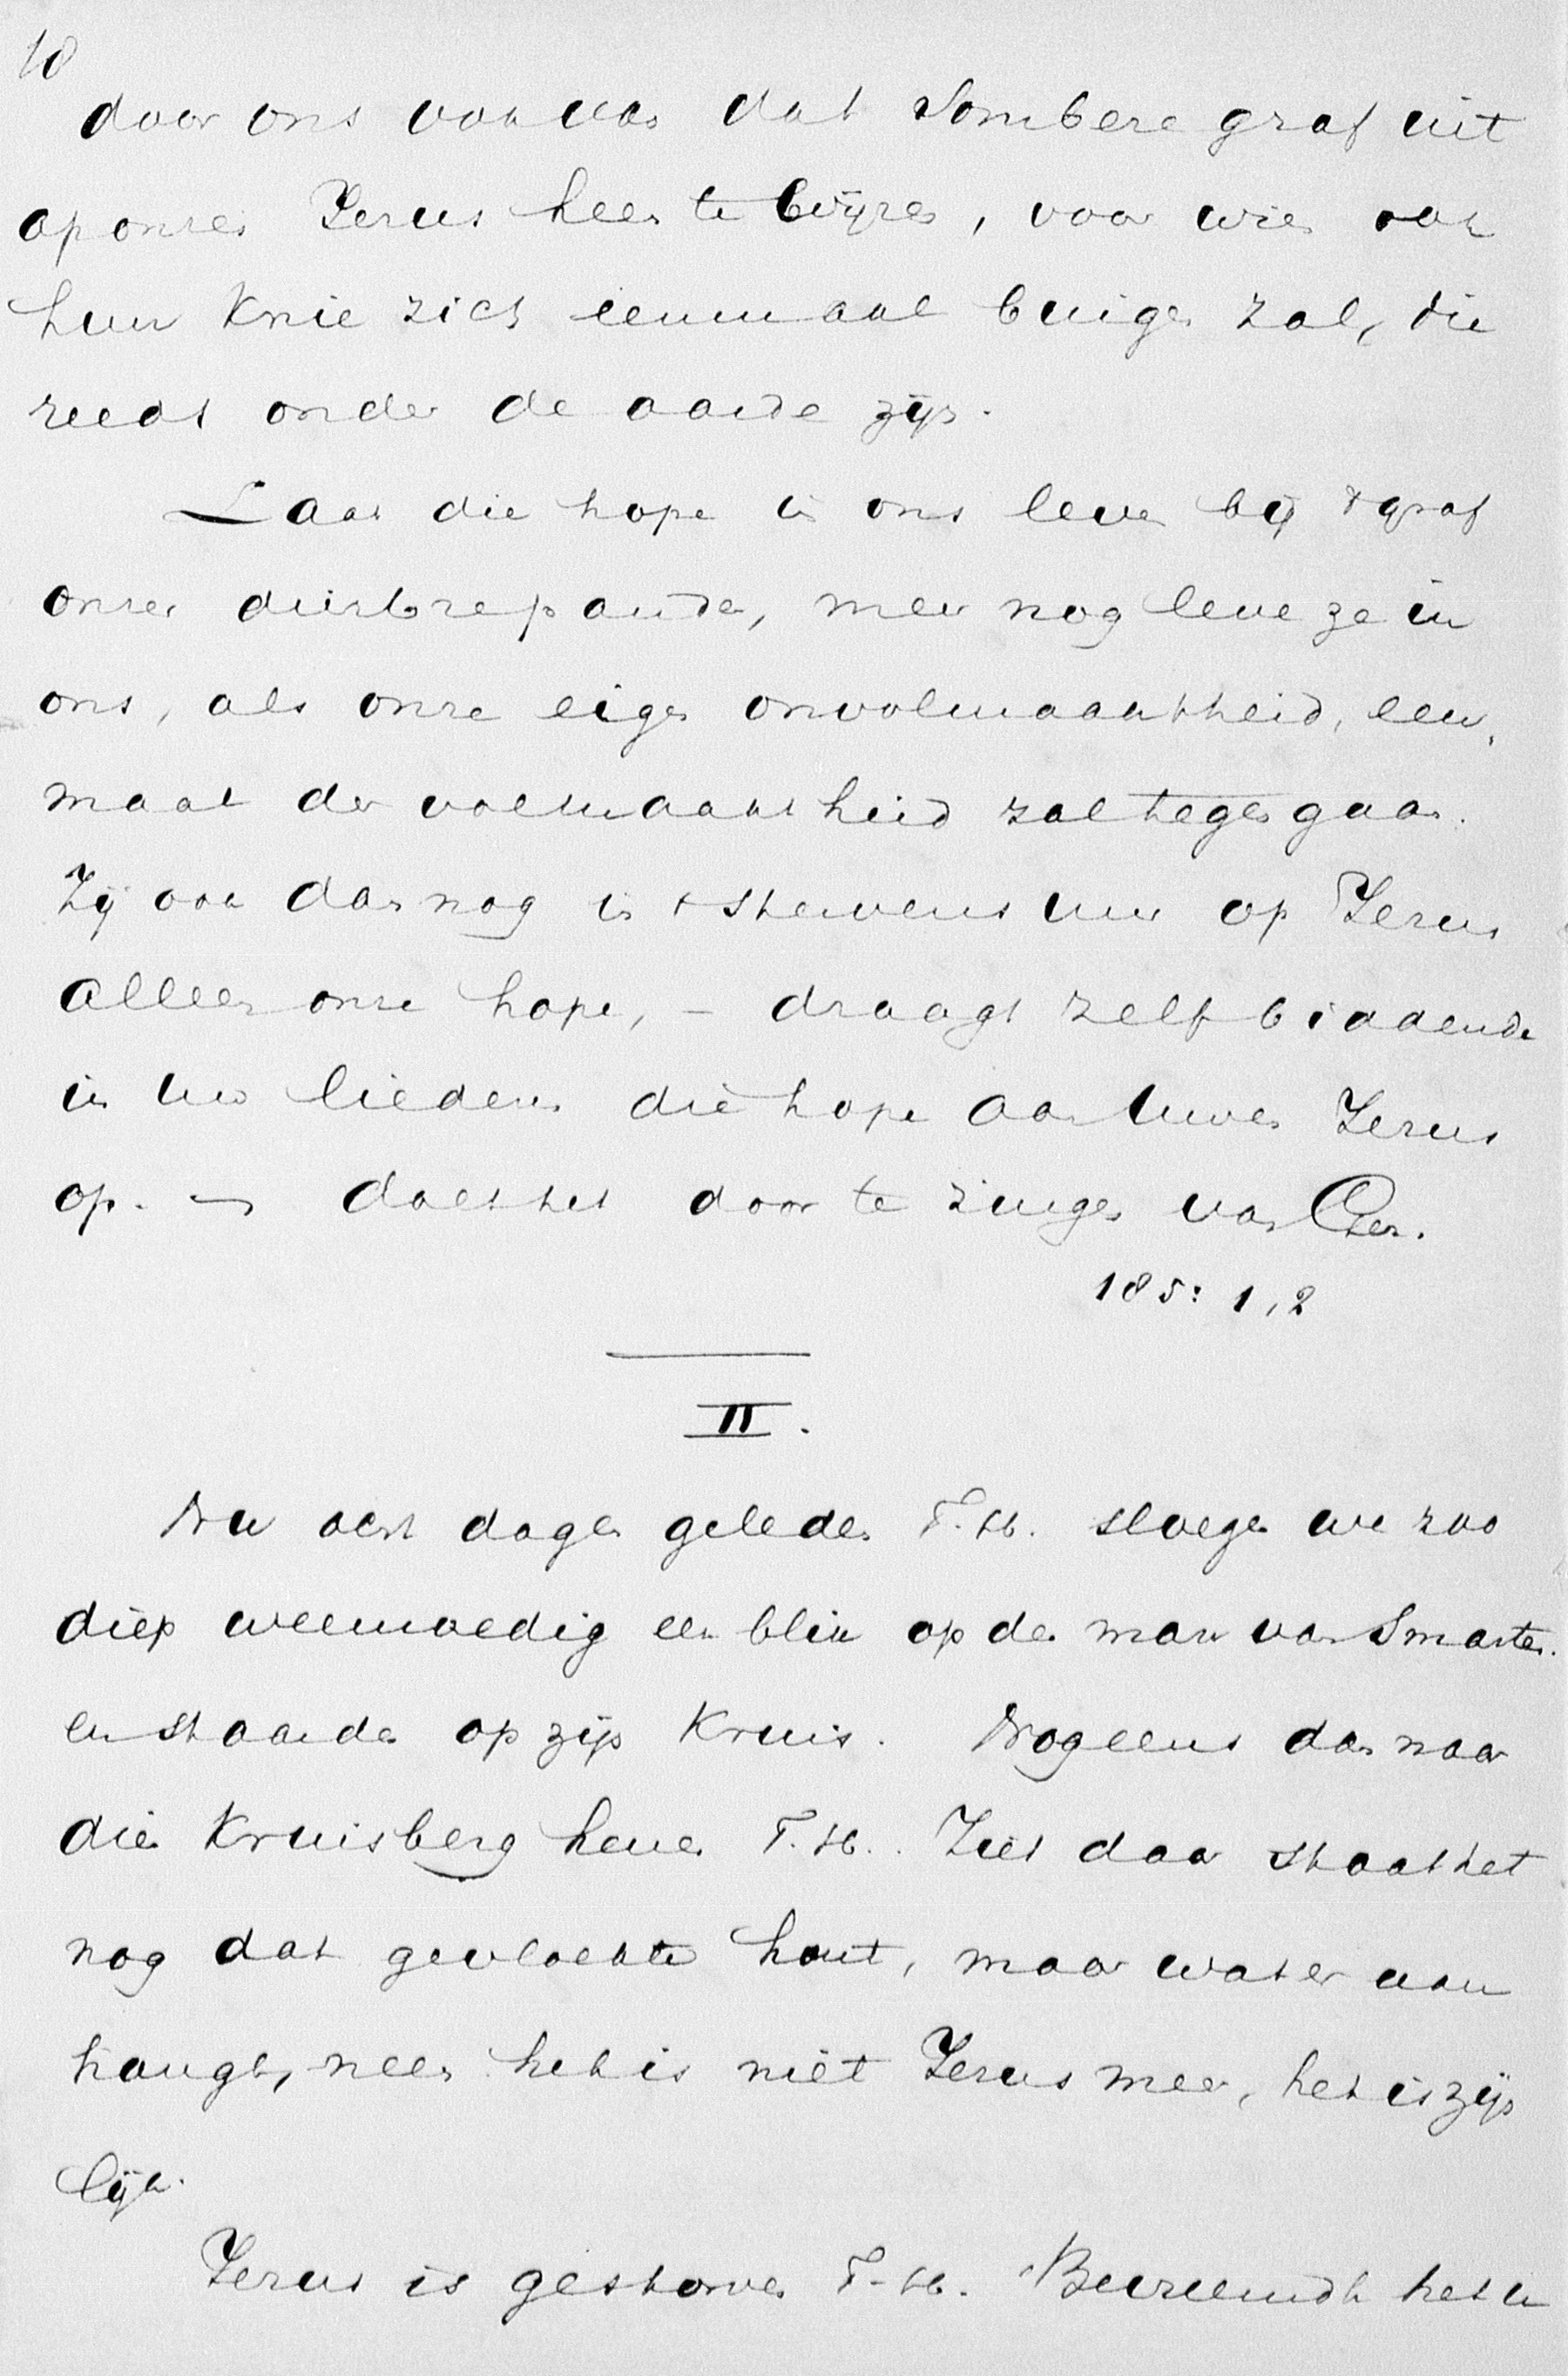 10
door ons ook van dat sombere graf uit
op onzen Jezus heen te wijzen, voor wien ook
hun knie zich eenmaal buigen zal, die
reeds onder de aarde zijn.
Laat die hope in ons leven bij 't graf
onzer dierbre panden, meer nog leve ze in
ons, als onze eigen onvolmaaktheid, een-
maal der volmaaktheid zal tegengaan.
Zij ook dan nog in 't stervensuur op Jezus
alleen onze hope, – draagt zelf biddende
in uw liederen die hope aan Uwen Jezus
op. – doet het door te zingen van Gez.
185: 1, 2
II.
Nu acht dagen geleden T. H. sloegen we zoo
diep weemoedig een blik op den man van Smarten.
en staarden op zijn Kruis. Nog eens dan naar
dien Kruisberg henen T. H. Ziet daar staat het
nog dat gevloekte hout, maar wat er aan
hangt, neen het is niet Jezus meer, het is zijn
lijk.
Jezus is gestorven T. H. Beureundt het u